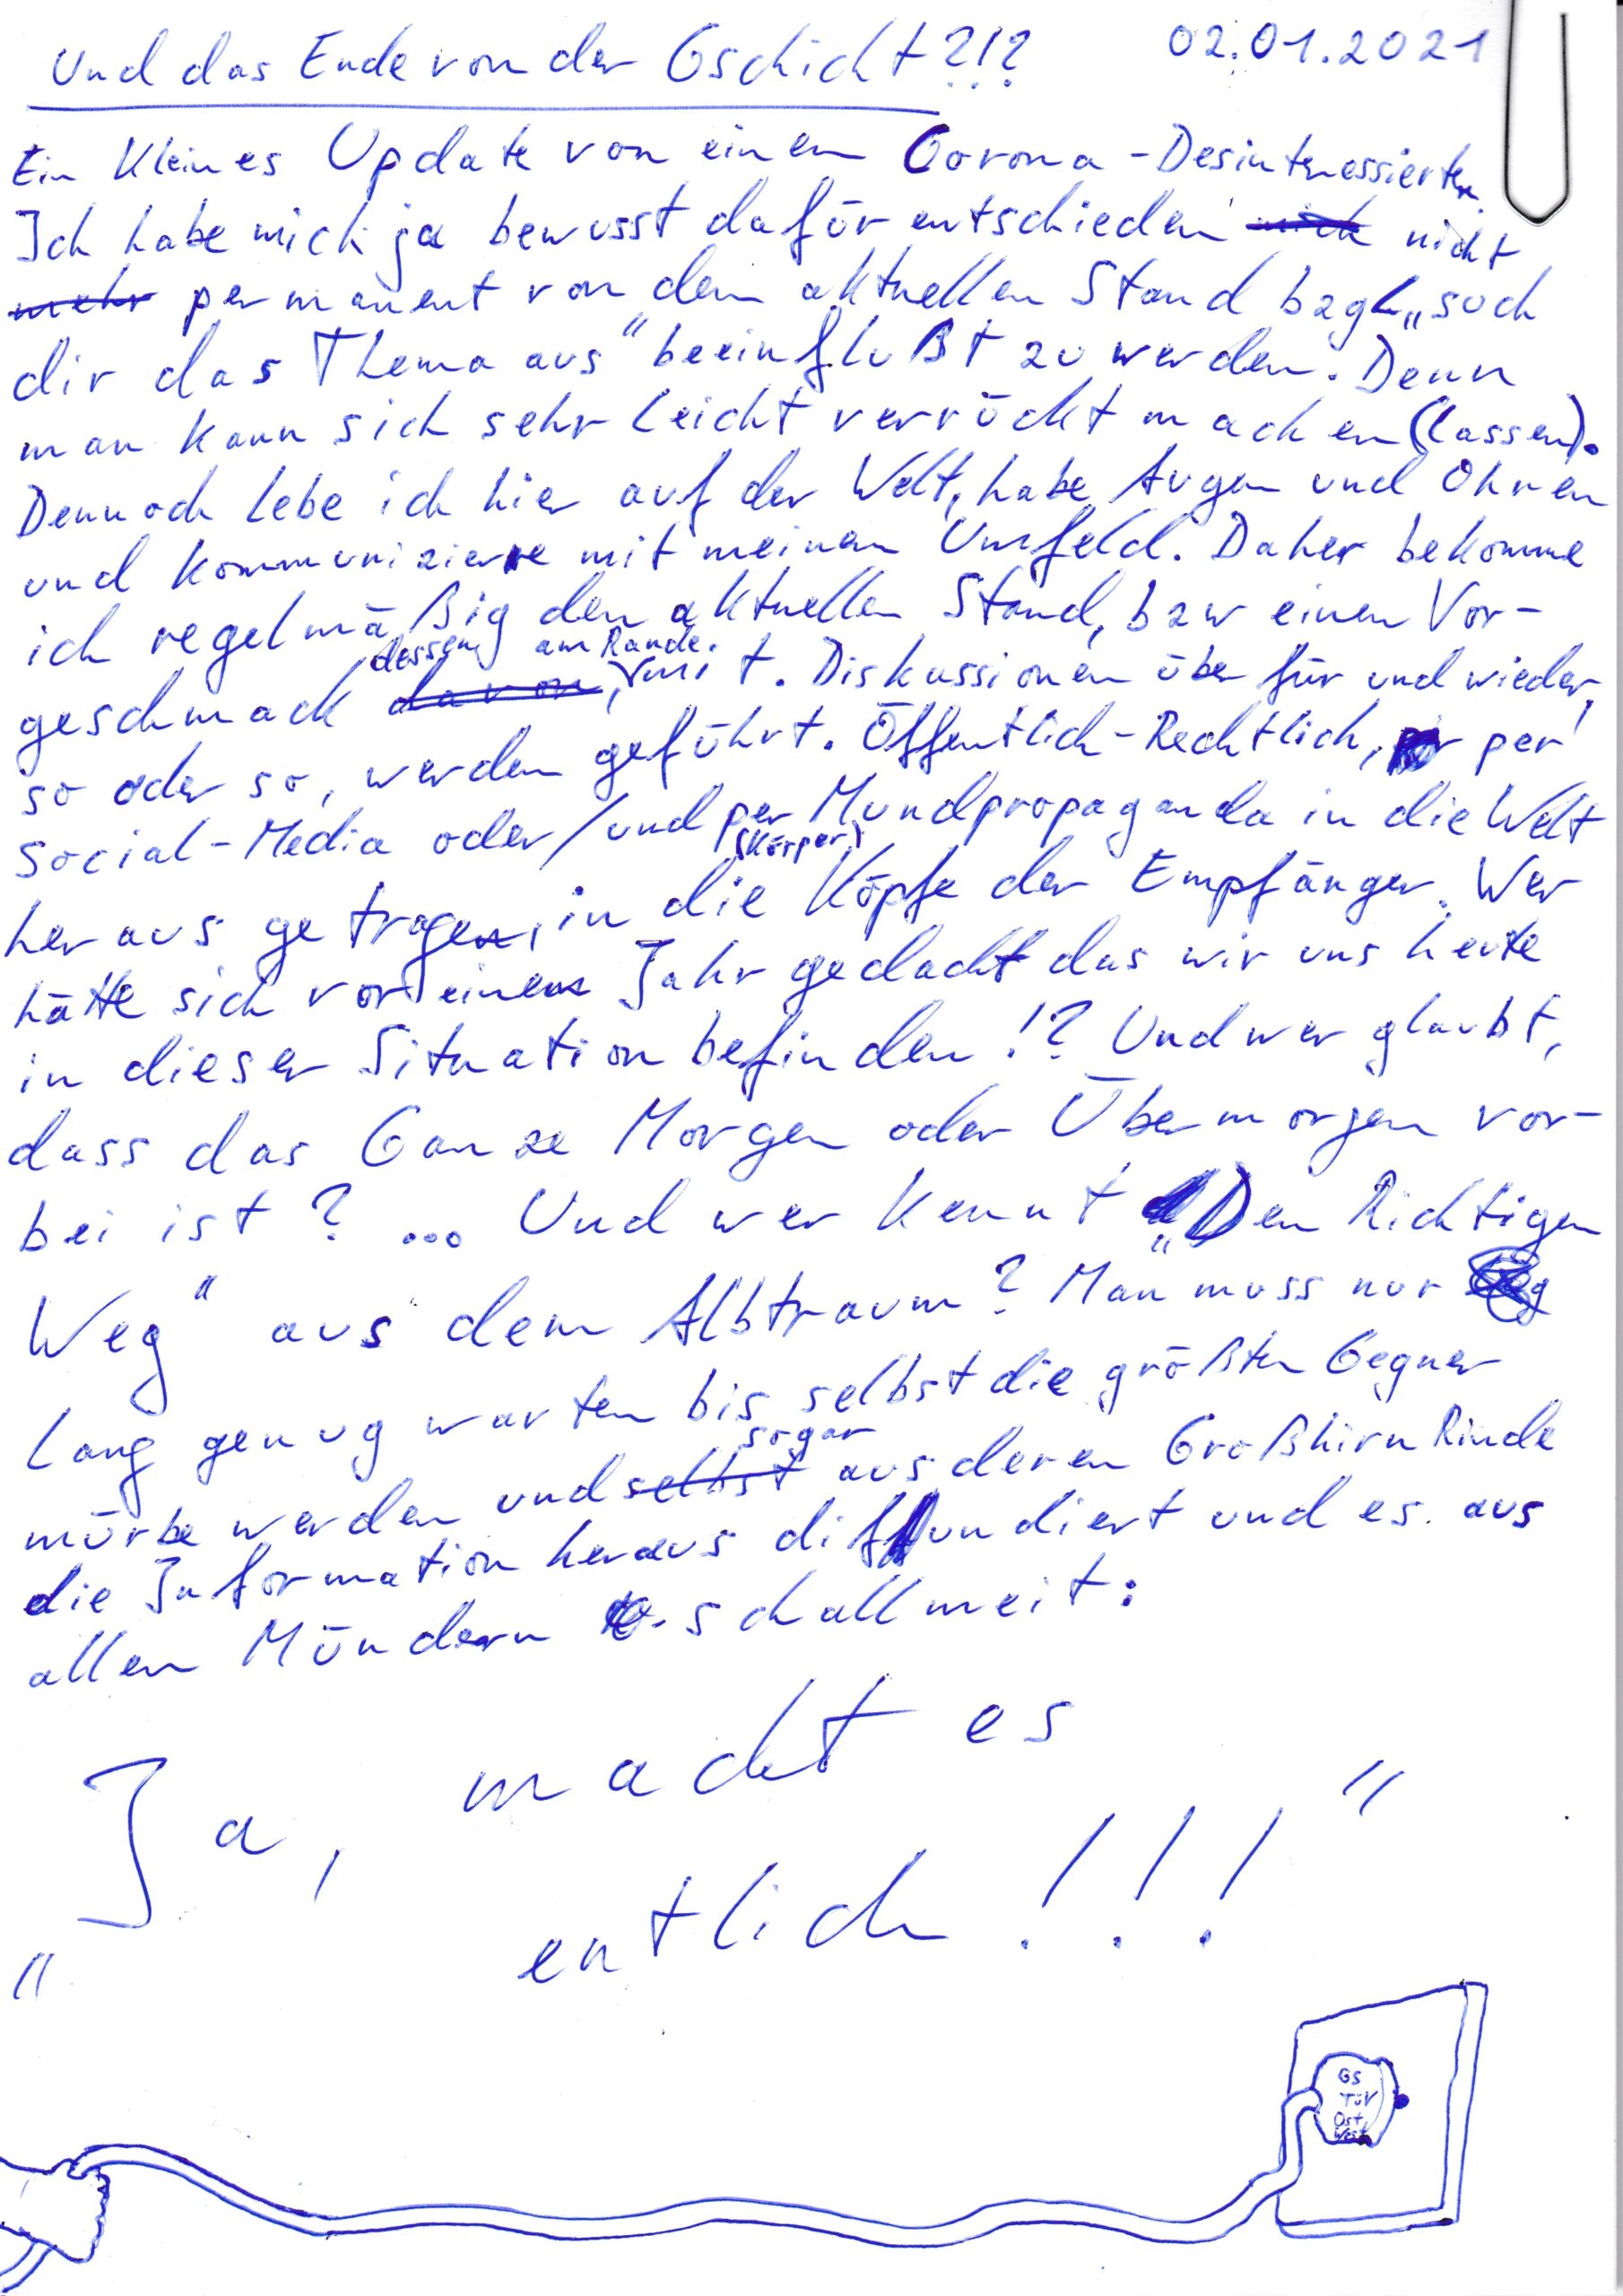 Und das Ende von der Gschicht?!? 02.01.2021
Ein kleines Update von einem Corona-Desinteressierten.
Ich habe mich ja bewusst dafür entschieden nicht
permanent von dem aktuellen Stand bzgl. „such
dir das Thema aus" beeinflußt zu werden. Denn
man kann sich sehr leicht verrückt machen (lassen).
Dennoch lebe ich hier auf der Welt, habe Augen und Ohren
und kommuniziere mit meinem Umfeld. Daher bekomme
ich regelmäßig den aktuellen Stand, bzw einen Vor-
geschmack dessen, am Rande mit. Diskussionen über für und wieder,
so oder so, werden geführt. Öffentlich-Rechtlich, per
Social-Media oder/und per Mundpropaganda in die Welt
heraus getragen, in die Köpfe (Körper) der Empfänger. Wer
hätte sich vor einem Jahr gedacht das wir uns heute
in dieser Situation befinden!? Und wer glaubt,
dass das Ganze Morgen oder Übermorgen vor-
bei ist? ... Und wer kennt „Den Richtigen
Weg" aus dem Albtraum? Man muss nur
lang genug warten bis selbst die größten Gegner
mürbe werden und sogar aus deren Großhirn Rinde
die Information heraus diffundiert und es aus
allen Mündern schallmeit:
„Ja, macht es
entlich!!!"
GS
TÜV
Ost
West